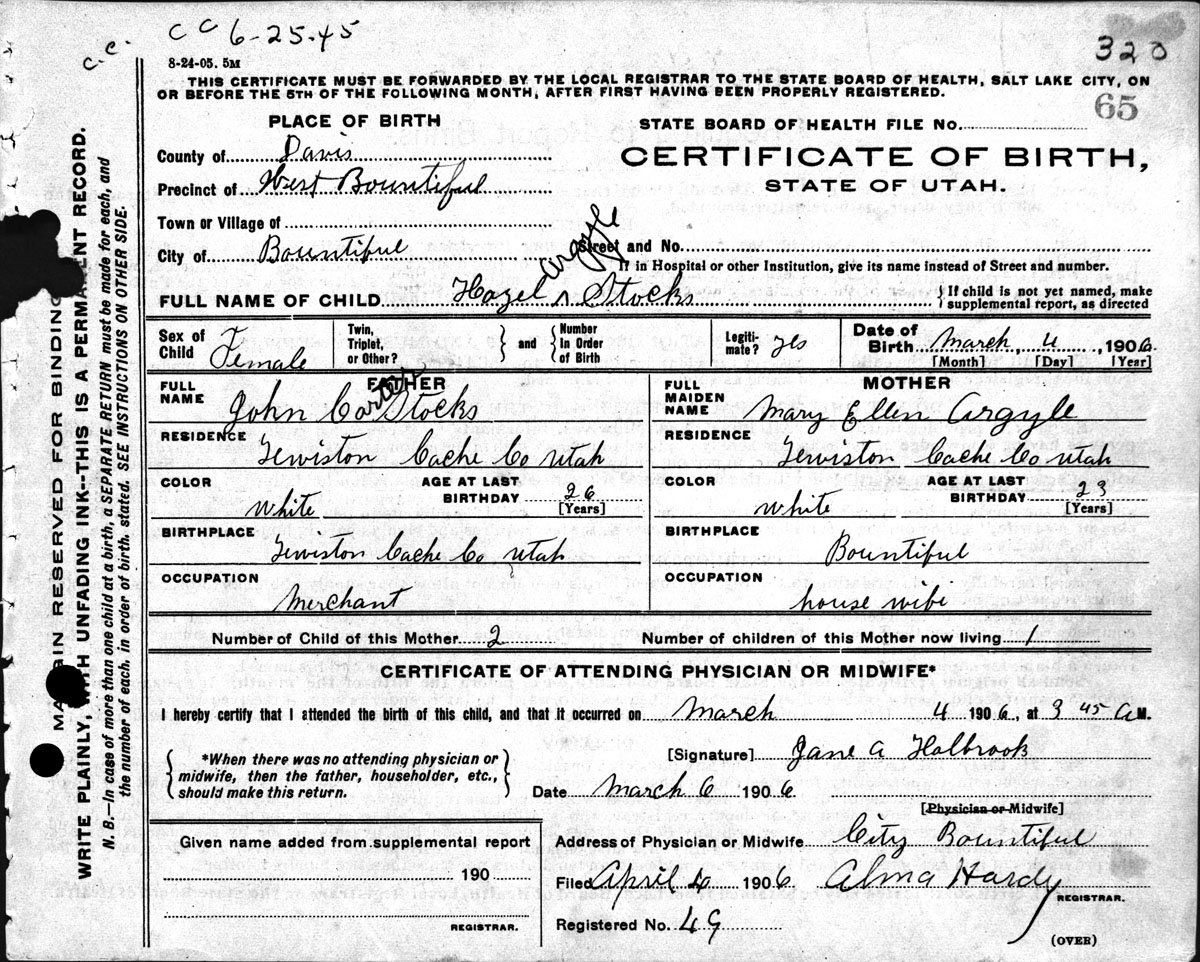 C C 6-25-45
C. C.
320
8-24-05. 5M
THIS CERTIFICATE MUST BE FORWARDED BY THE LOCAL REGISTRAR TO THE STATE BOARD OF HEALTH, SALT LAKE CITY, ON
OR BEFORE THE 5TH OF THE FOLLOWING MONTH, AFTER FIRST HAVING BEEN PROPERLY REGISTERED.
65
PLACE OF BIRTH
STATE BOARD OF HEALTH FILE No.
County of Davis
CERTIFICATE OF BIRTH,
Precinct of West Bountiful
STATE OF UTAH.
Town or Village of
City of Bountiful
Street and No.
If in Hospital or other Institution, give its name instead of Street and number.
Argyle
FULL NAME OF CHILD Hazel ^ Stocks { If child is not yet named, make
supplemental report, as directed
Sex of Child Female
Twin, Triplet, or Other? } and { Number In Order of Birth
Legiti-mate? yes
Date of Birth March, 4, 1906.
[Month] [Day] [Year]
FATHER
FULL NAME John Carter Stocks
RESIDENCE Lewiston Cache Co Utah
COLOR White
AGE AT LAST BIRTHDAY 26 [Years]
BIRTHPLACE Lewiston Cache Co Utah
OCCUPATION Merchant
MOTHER
FULL MAIDEN NAME Mary Ellen Argyle
RESIDENCE Lewiston Cache Co Utah
COLOR White
AGE AT LAST BIRTHDAY 23 [Years]
BIRTHPLACE Bountiful
OCCUPATION house wife
Number of Child of this Mother 2 Number of children of this Mother now living 1
CERTIFICATE OF ATTENDING PHYSICIAN OR MIDWIFE*
I hereby certify that I attended the birth of this child, and that it occurred on March 4 1906, at 3 45 A M.
{ *When there was no attending physician or
midwife, then the father, householder, etc.,
should make this return. }
[Signature] Jane A Holbrook
Date March 6 1906
[Physician or Midwife]
Given name added from supplemental report
190
REGISTRAR.
Address of Physician or Midwife City Bountiful
Filed April 4 1906 Alma Hardy
REGISTRAR.
Registered No. 49
(OVER)
MARGIN RESERVED FOR BINDING
WRITE PLAINLY, WITH UNFADING INK--THIS IS A PERMANENT RECORD.
N. B.—In case of more than one child at a birth, a SEPARATE RETURN must be made for each, and
the number of each, in order of birth, stated. SEE INSTRUCTIONS ON OTHER SIDE.